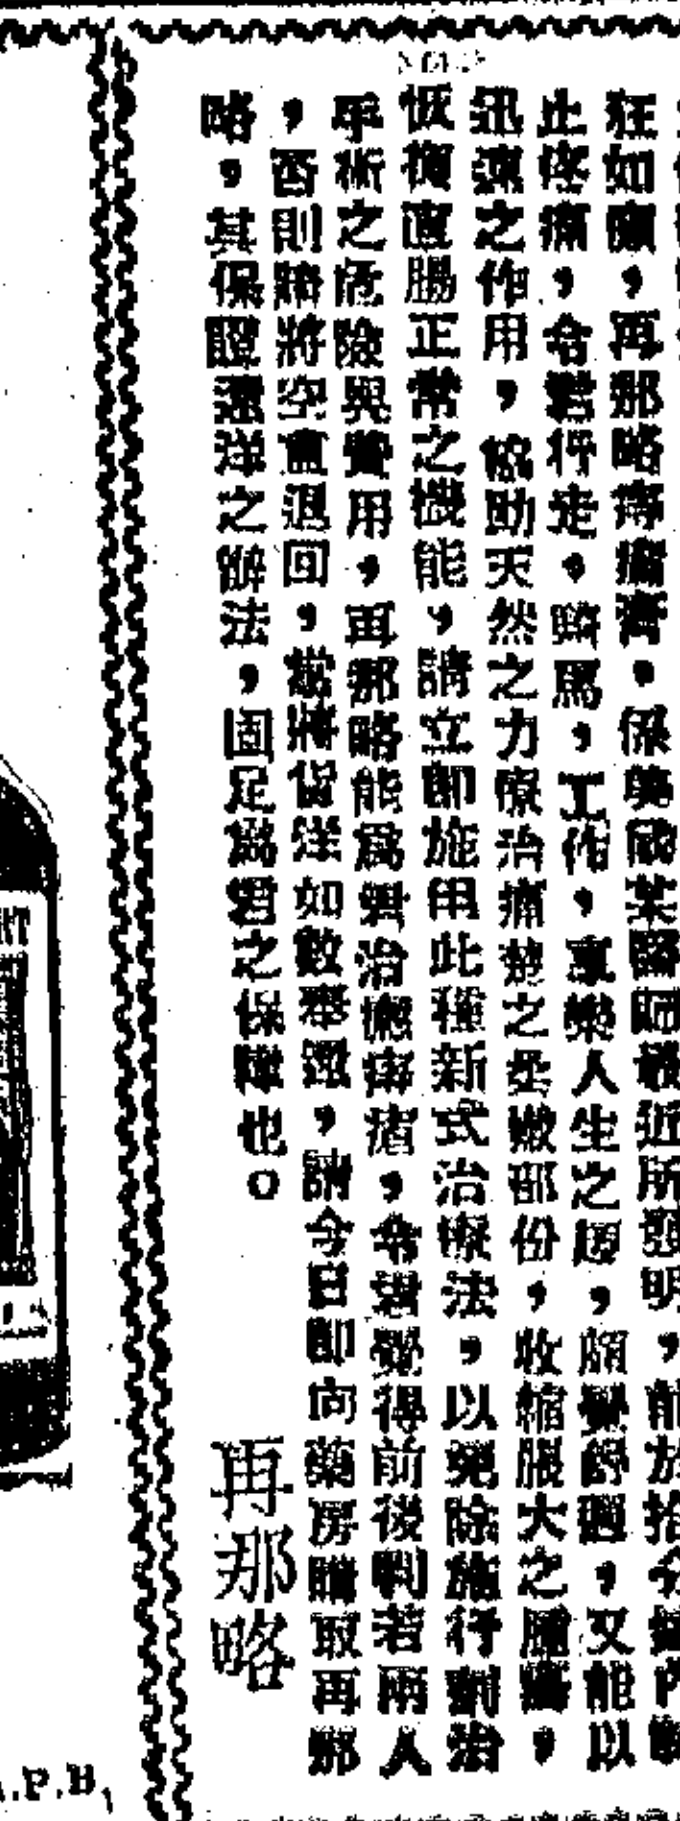 狂如癲，再那略痔瘡膏，係美國某醫師最近所發明，能於拾分鐘內
止疼痛，令君行走，騎馬，工作，享樂人生之趣，頗覺舒適，又能以
迅速之作用，協助天然之力療治痛楚之柔嫩部份，收縮脹大之腫瘍，
恢復直腸正常之機能，請立即施用此種新式治療法，以免除施行割治
手術之危險與費用，再那略能爲君治癒痔瘡，令君覺得前後判若兩人
，否則請將空盒退回，當將原洋如數奉還，請今日即向藥房購取再那
略，其保證還洋之辦法，固足爲君之保障也。
再那略
.P.B,